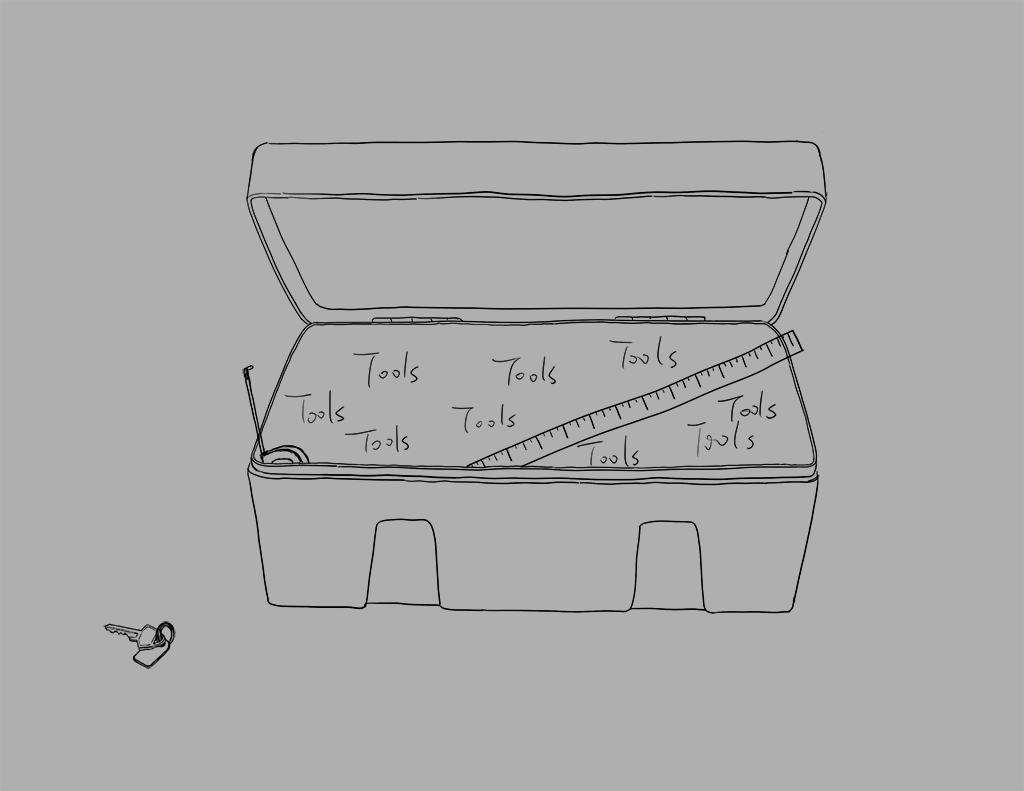 Tools
Tools
Tools
Tools
Tools
Tools
Tools
Tools
Tools